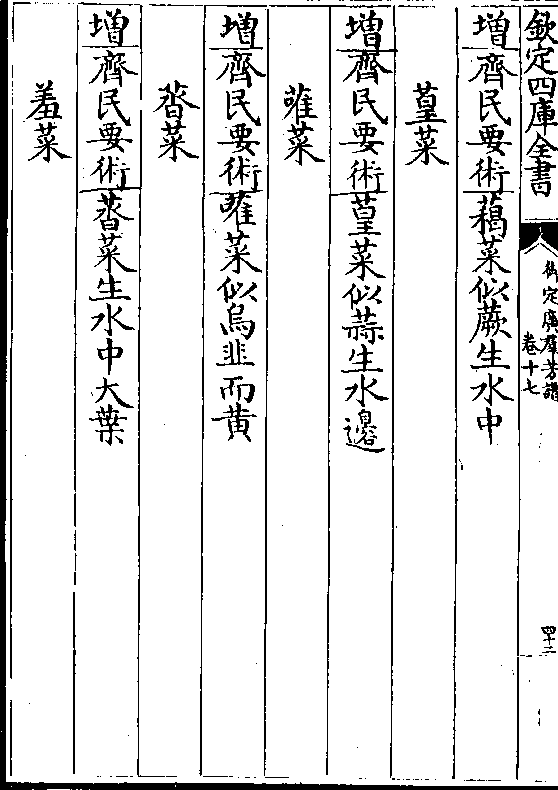 欽定四庫全書
御定廣羣芳譜
卷十七
四十二
增齊民要術藒菜似蕨生水中
葟菜
增齊民要術葟菜似蒜生水邊
蓶菜
增齊民要術蓶菜似烏韭而黄
菜
增齊民要術菜生水中大葉
羞菜